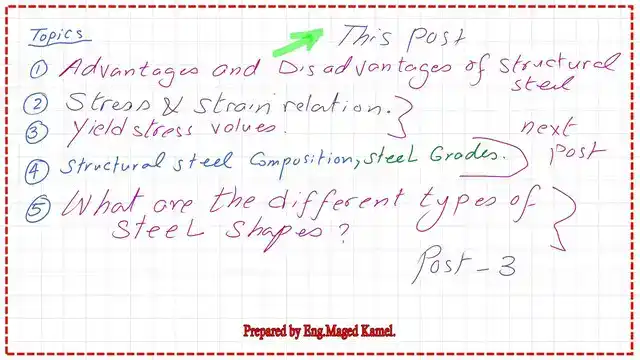 Topics
This Post
① Advantages and Disadvantages of structural
steel
② Stress & strain relation.
③ Yield stress values.
next
post
④ Structural steel Composition, Steel Grades.
⑤ What are the different types of
Steel shapes?
Post - 3
Prepared by Eng.Maged Kamel.